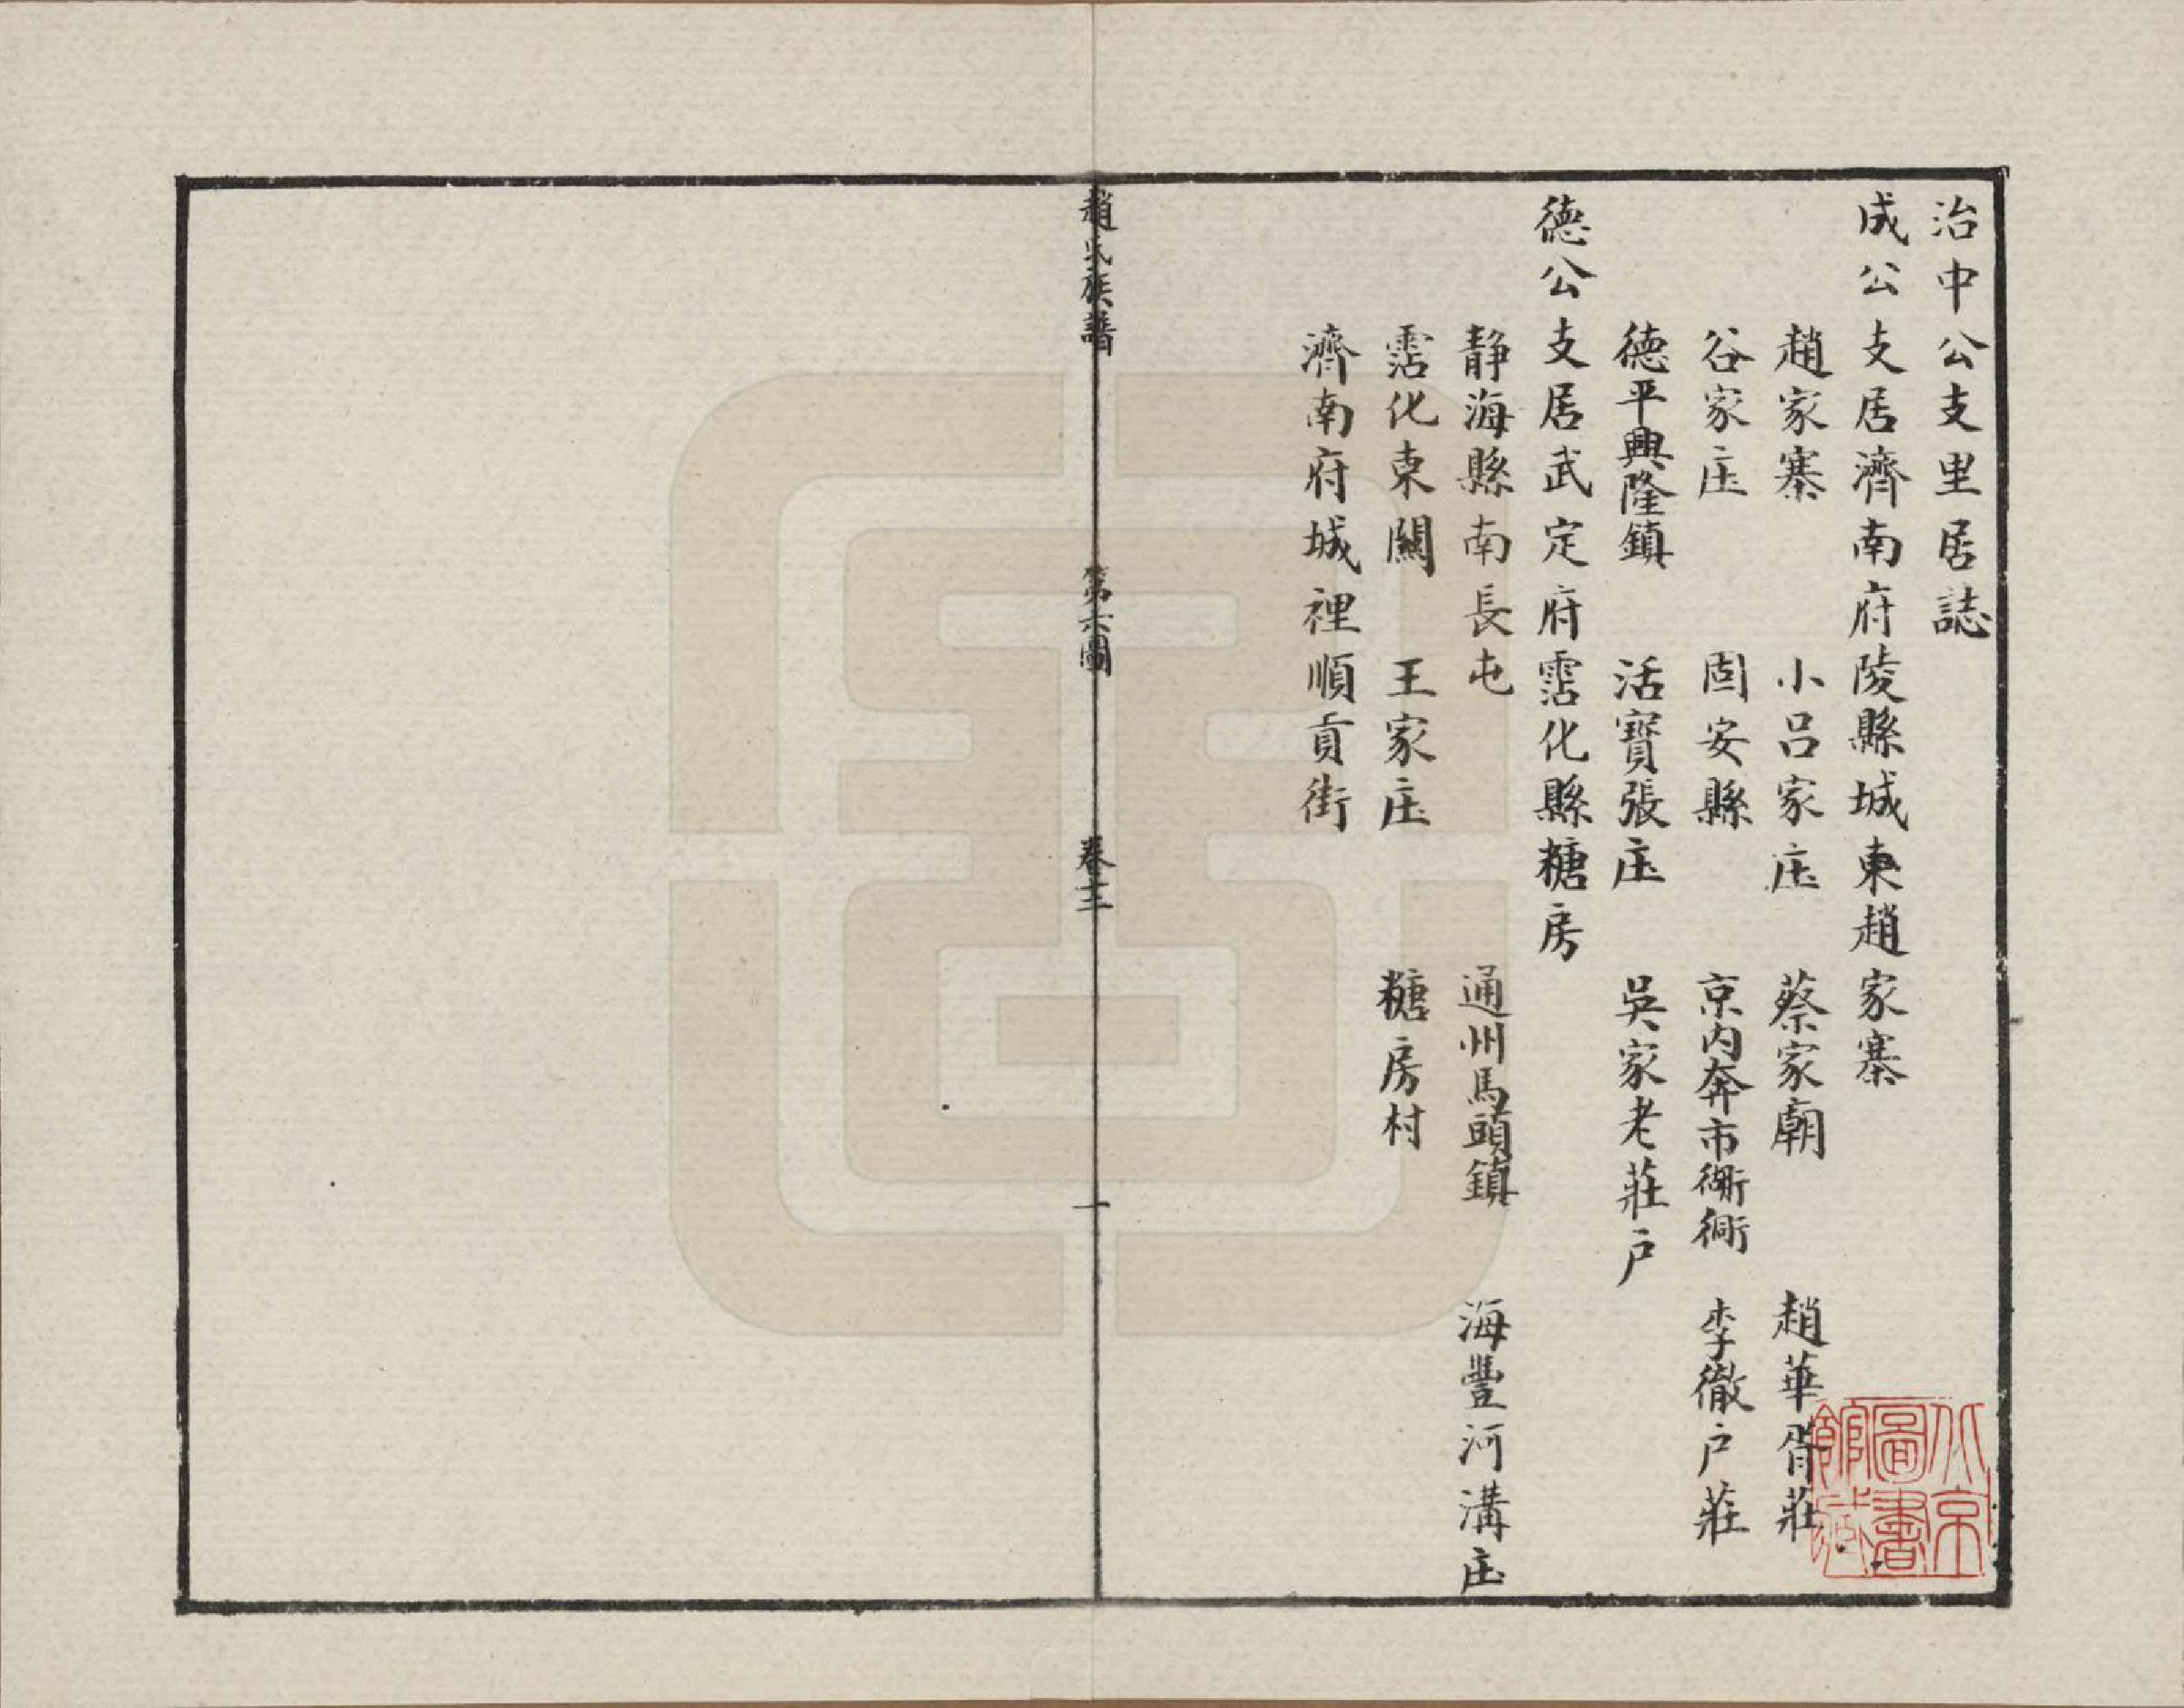 治中公支里居誌
成公支居濟南府陵縣城東趙家寨
趙家寨 小呂家庄 蔡家廟 趙華胥莊
谷家庄 固安縣 京內奔市衚衕 李徹户莊
德平興隆鎮 活寶張庄 吳家老莊户
德公支居武定府霑化縣糖房
静海縣南長屯 通州馬頭鎮 海豐河溝庄
霑化東關 王家庄 糖房村
濟南府城裡順貢街
趙氏族譜 第六圖 卷三 一
北京圖書館藏